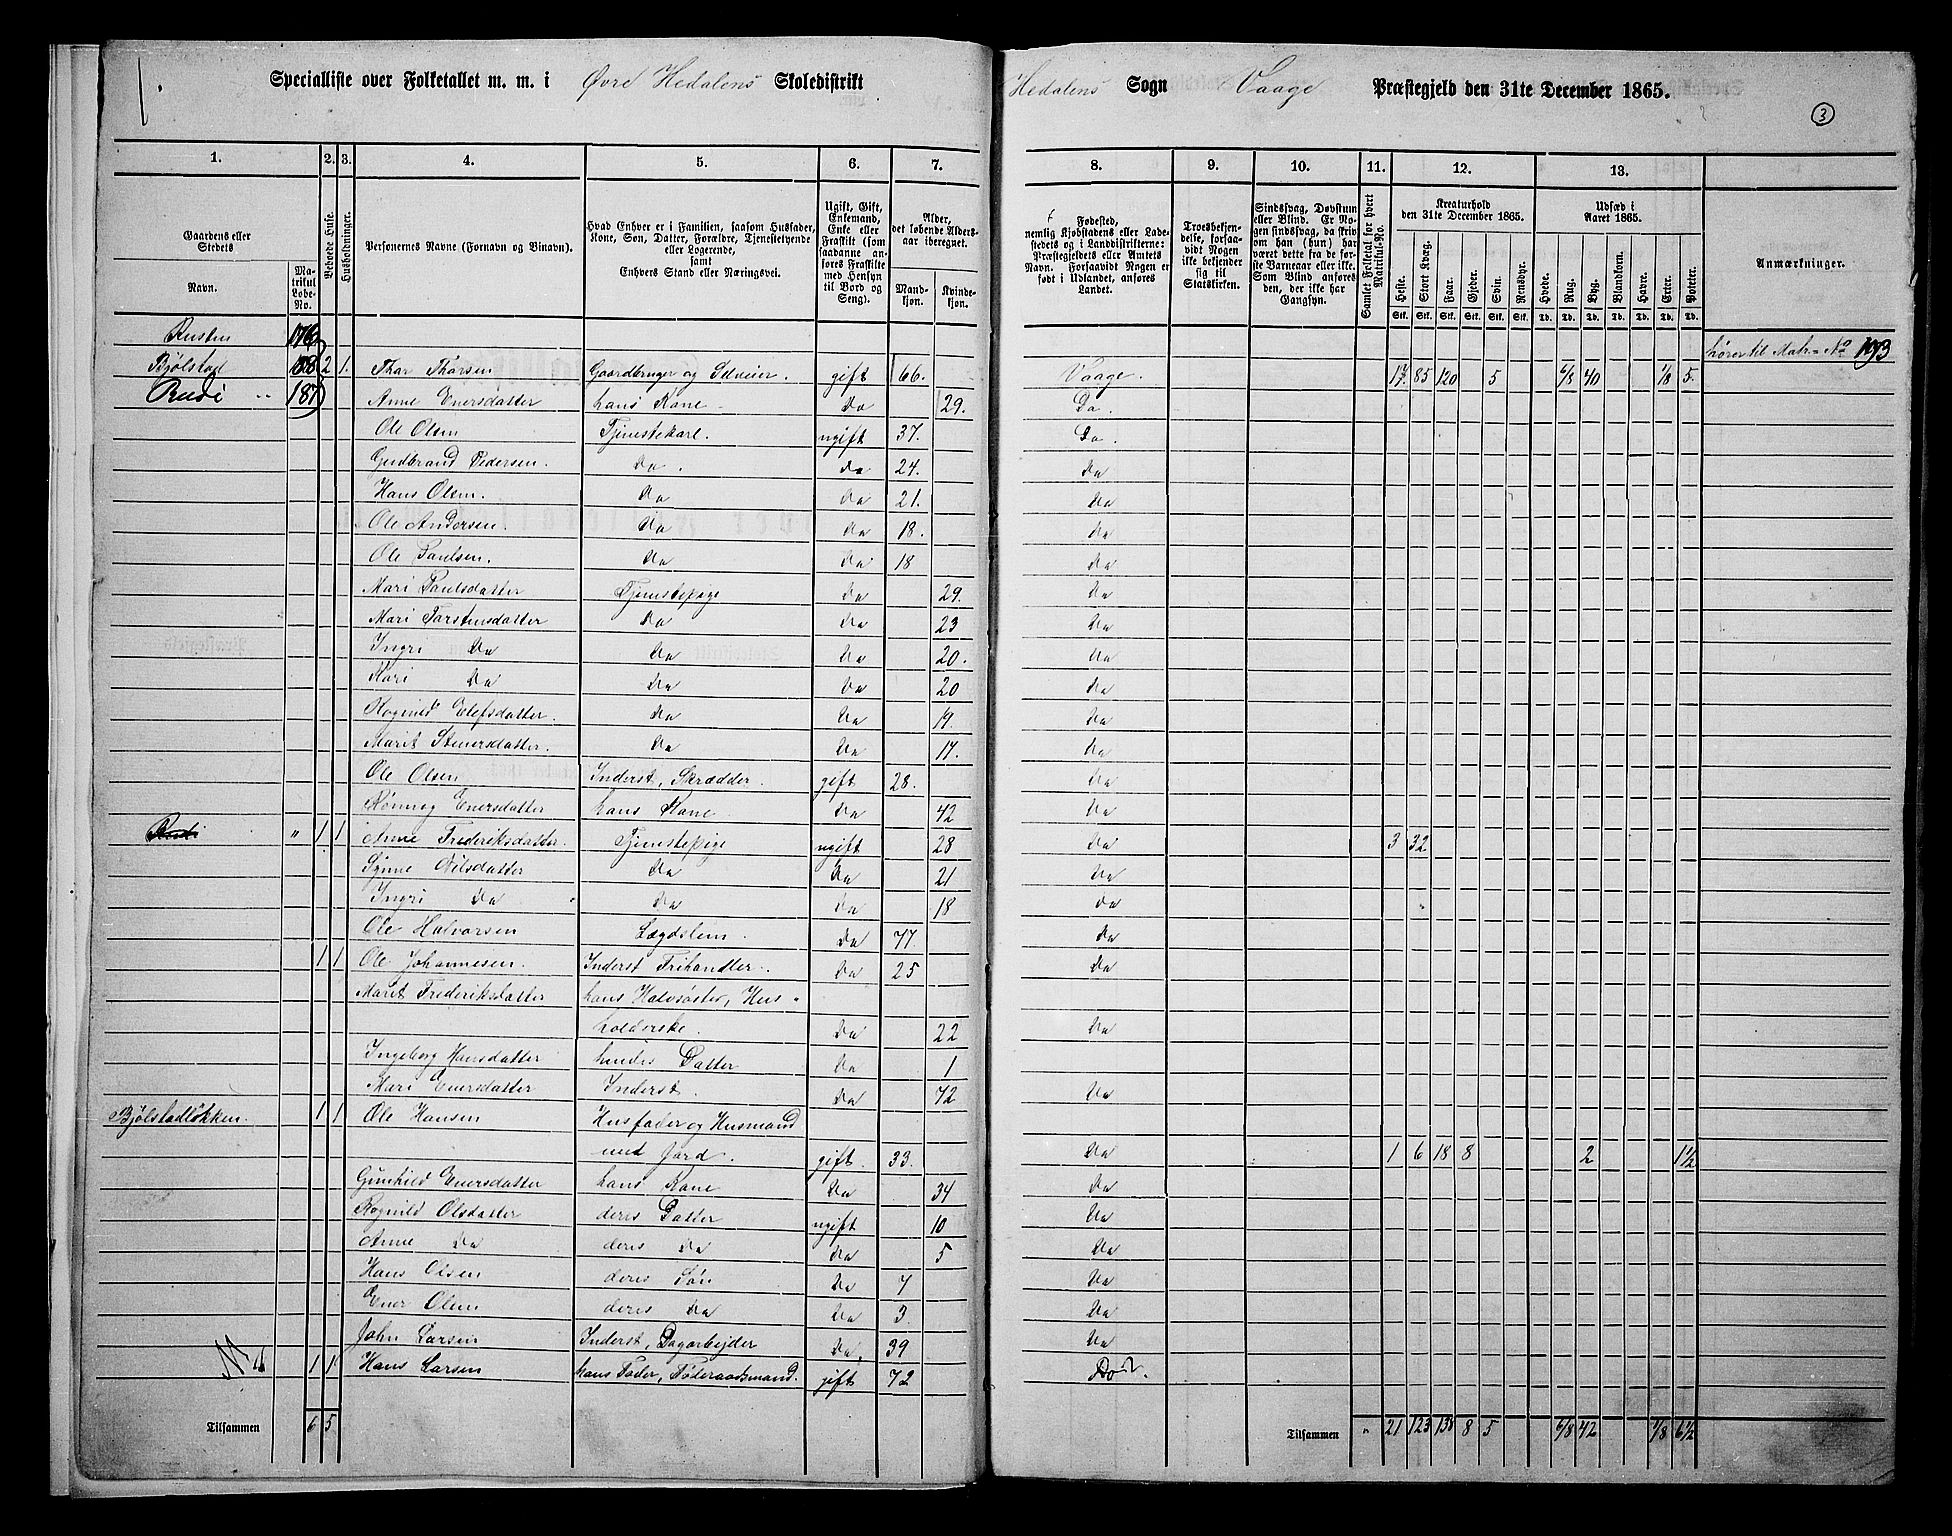 1.
Specialliste over Folketallet m. m. i Øvre Hedalens Skoledistrikt Hedalens Sogn Vaage Præstegjeld den 31te December 1865.
3
1. 2. 3. 4. 5. 6. 7. 8. 9. 10. 11. 12. 13.
Gaardens eller Stedets
Navn.
Matrikul Løbe-No.
Beboede Huse.
Husholdninger.
Personernes Navne (Fornavn og Binavn).
Hvad Enhver er i Familien, saasom Husfader, Kone, Søn, Datter, Forældre, Tjenstetyende eller Logerende, samt Enhvers Stand eller Næringsvei.
Ugift, Gift, Enkemand, Enke eller Fraskilt (som saadanne anføres Fraskilte med Hensyn til Bord og Seng).
Alder, det løbende Alders-aar iberegnet.
Mandkjøn. Kvindekjøn.
Fødested, nemlig Kjøbstadens eller Ladestedets og i Landdistrikterne: Præstegjeldets eller Amtets Navn. Forsaavidt Nogen er født i Udlandet, anføres Landet.
Troesbekjendelse, forsaavidt Nogen ikke bekjender sig til Statskirken.
Sindssvag, Døvstum eller Blind. Er Nogen sindssvag, da skrives om han (hun) har været dette fra de første Barneaar eller ikke. Som Blind anføres den, der ikke har Gangsyn.
Samlet Folketal for hvert Matrikul-No.
Kreaturhold den 31te December 1865.
Heste. Stort Kvæg. Faar. Gjeder. Svin. Rensdyr.
Stk. Stk. Stk. Stk. Stk. Stk.
Udsæd i Aaret 1865.
Hvede. Rug. Byg. Blandkorn. Havre. Erter. Poteter.
Td. Td. Td. Td. Td. Td. Td.
Anmærkninger.
Rusten 176 hører til Matr. No 193
Bjølstad 2 1. Thor Thorsen Gaardbruger og Selveier. gift 66. Vaage. 17. 85 120 5 6/8 40 1/8 5.
Rudi " 187 Anne Enersdatter hans Kone Do 29. Do.
Ole Olsen Tjenstekarl. ugift 37. Do.
Gudbrand Pedersen. Do. Do 24. Do
Hans Olsen. Do Do 21. Do
Ole Andersen. Do Do 18. Do
Ole Paulsen. Do Do 18 Do
Mari Paulsdatter Tjenstepige Do 29. Do
Mari Torstensdatter Do Do 23 Do
Ingri Do Do Do 20. Do
Kari Do Do Do 20 Do
Rognild Elefsdatter. Do Do 19 Do
Marit Stenersdatter. Do Do 17. Do
Ole Olsen Inderst, Skrædder. gift 28. Do
Rønnog Enersdatter hans Kone. Do 42 Do
Rudi " 1 1 Anne Frederiksdatter. Tjenstepige ugift 28 Do 3 32
Synne Nilsdatter Do Do 21 Do
Ingri Do Do Do 18 Do
Ole Halvorsen Lægdslem. Do 77. Do
1 1 Ole Johannesen. Inderst Frihandler. Do 25 Do
Marit Frederiksdatter hans Halvsøster, Hus-
holderske. Do 22 Do
Ingeborg Hansdatter hendes Datter Do 1
Mari Enersdatter Inderst. Do 72 Do
Bjølstadløkken. 1 1 Ole Hansen Husfader og Husmand
med Jord. gift. 33. Do 1 6 18 8 2 1½
Gunhild Enersdatter hans Kone Do 34 Do
Rognild Olsdatter deres Datter ugift 10 Do
Anne Do deres Do Do 5 Do
Hans Olsen deres Søn Do 7 Do
Ener Olsen deres Do Do 3. Do
John Larsen Inderst, Dagarbejder Do, 39 Do
1 1 Hans Larsen hans Fader, Føderaadsmand. gift 72 Do.
Tilsammen 6 5 Tilsammen " 21 123 138 8 5 6/8 42 1/8 6½